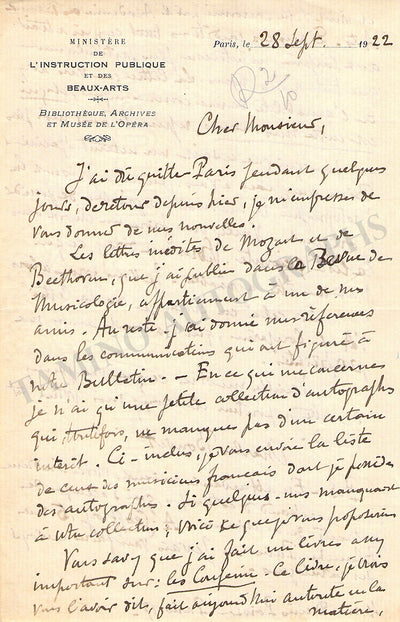 MINISTÈRE
DE
L'INSTRUCTION PUBLIQUE
ET DES
BEAUX-ARTS
BIBLIOTHÈQUE, ARCHIVES
ET MUSÉE DE L'OPÉRA
Paris, le 28 Sept. 1922
Cher Monsieur,
J'ai dû quitter Paris pendant quelques
jours, de retour depuis hier, je m'empresse de
vous donner de mes nouvelles.
Les lettres inédites de Mozart et de
Beethoven, que j'ai publiées dans la Revue de
Musicologie, appartiennent à un de mes
amis. Au reste j'ai donné mes références
dans les communications qui ont figuré à
notre Bulletin. — En ce qui me concerne
je n'ai qu'une petite collection d'autographes
qui toutefois, ne manque pas d'un certain
intérêt. Ci-inclus, je vous envoie la liste
de ceux des musiciens français dont je possède
des autographes. Si quelques-uns manquaient
à votre collection, voici ce que je vous proposerais
Vous savez que j'ai fait un livre assez
important sur les Couperin. Ce livre, je crois
vous l'avoir dit, fait aujourd'hui autorité en la
matière,
TAMINO AUTOGRAPHS